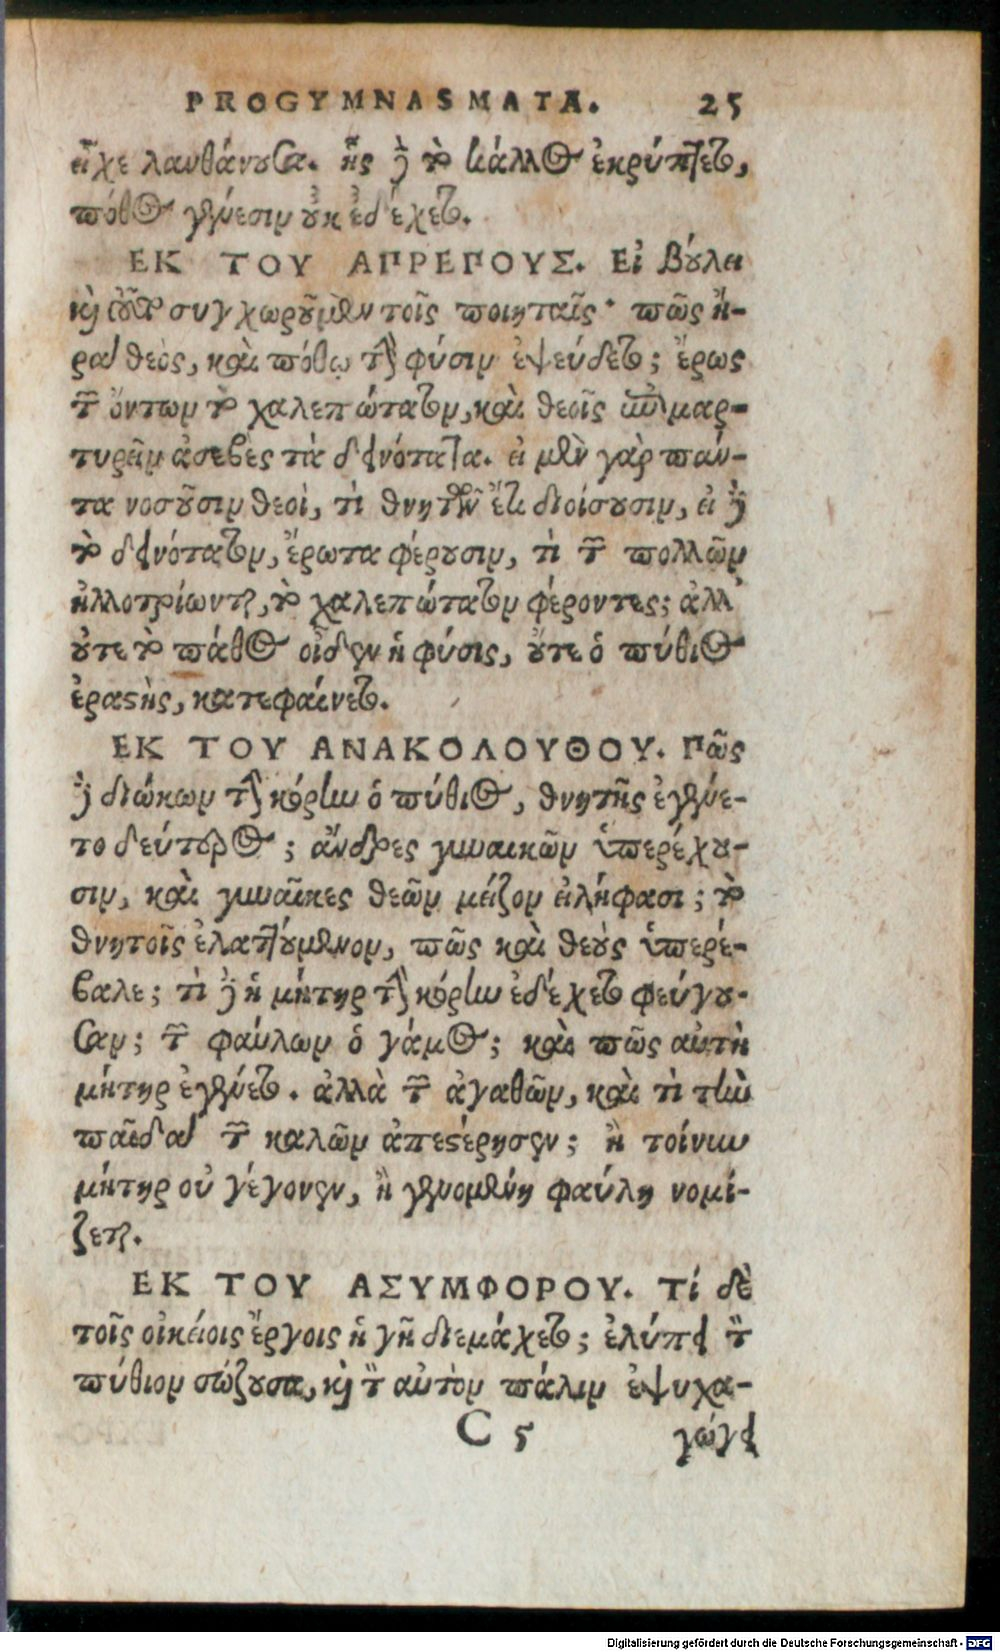 PROGYMNASMATA. 25
εἶχε λανθάνουσα. ἧς δὲ τὸ κάλλος ἐκρύπτετο,
πόθος γένεσιν οὐκ ἐδέχετο.
ΕΚ ΤΟΥ ΑΠΡΕΠΟΥΣ. Εἰ βούλει
καὶ τοῦτο συγχωροῦμεν τοῖς ποιηταῖς· πῶς ἤ-
ρα θεὸς, καὶ πόθῳ τὴν φύσιν ἐψεύδετο; ἔρως
τῶν ὄντων τὸ χαλεπώτατον, καὶ θεοῖς προσμαρ-
τυρεῖν ἀσεβὲς τὰ δεινότατα. εἰ μὲν γὰρ πάν-
τα νοσοῦσιν θεοὶ, τί θνητῶν ἔτι διοίσουσιν, εἰ δὲ
τὸ δεινότατον, ἔρωτα φέρουσιν, τί τῶν πολλῶν
ἠλλοτρίωνται, τὸ χαλεπώτατον φέροντες; ἀλλ'
οὔτε τὸ πάθος οἶδεν ἡ φύσις, οὔτε ὁ πύθιος
ἐραστὴς, κατεφαίνετο.
ΕΚ ΤΟΥ ΑΝΑΚΟΛΟΥΘΟΥ. Πῶς
δὲ διώκων τὴν κόρην ὁ πύθιος, θνητῆς ἐγένε-
το δεύτερος; ἄνδρες γυναικῶν ὑπερέχου-
σιν, καὶ γυναῖκες θεῶν μεῖζον εἰλήφασι; τὸ
θνητοῖς ἐλαττούμενον, πῶς καὶ θεοὺς ὑπερέ-
βαλε; τί δὲ ἡ μήτηρ τὴν κόρην ἐδέχετο φεύγου-
σαν; τῶν φαύλων ὁ γάμος; καὶ πῶς αὐτὴ
μήτηρ ἐγένετο. ἀλλὰ τῶν ἀγαθῶν, καὶ τί τὴν
παῖδα τῶν καλῶν ἀπεστέρησεν; ἢ τοίνυν
μήτηρ οὐ γέγονεν, ἢ γενομένη φαύλη νομί-
ζεται.
ΕΚ ΤΟΥ ΑΣΥΜΦΟΡΟΥ. Τί δὲ
τοῖς οἰκείοις ἔργοις ἡ γῆ διεμάχετο; ἐλύπει τὸν
πύθιον σώζουσα, καὶ τὸν αὐτὸν πάλιν ἐψυχα-
C 5 γώγει
Digitalisierung gefördert durch die Deutsche Forschungsgemeinschaft - DFG